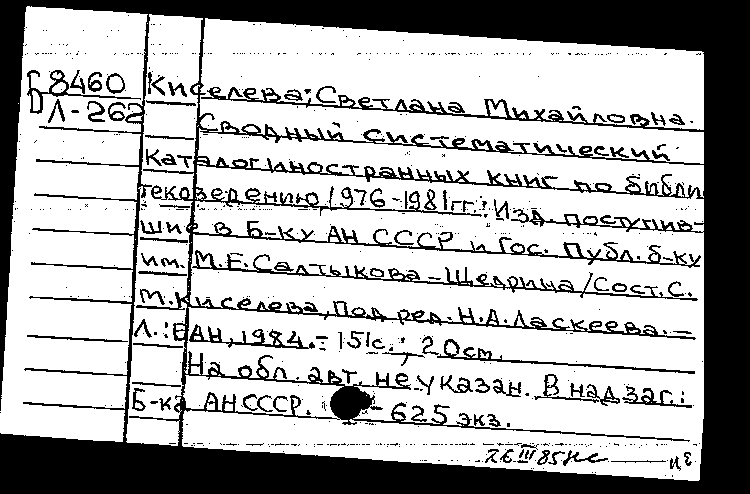 Г8460 Киселева; Светлана Михайловна.
Л-262 Сводный систематический
каталог иностранных книг по библи
тековедению 1976-1981гг.: Изд. поступив-
шие в Б-ку АН СССР и Гос. Публ. б-ку
им. М.Е. Салтыкова-Щедрина / Сост. С.
М. Киселева, Под ред. Н.А. Ласкеева. -
Л.: БАН, 1984. - 151с.; 20см.
На обл. авт. не указан. В надзаг.:
Б-ка АН СССР. - 625 экз.
26 III 85